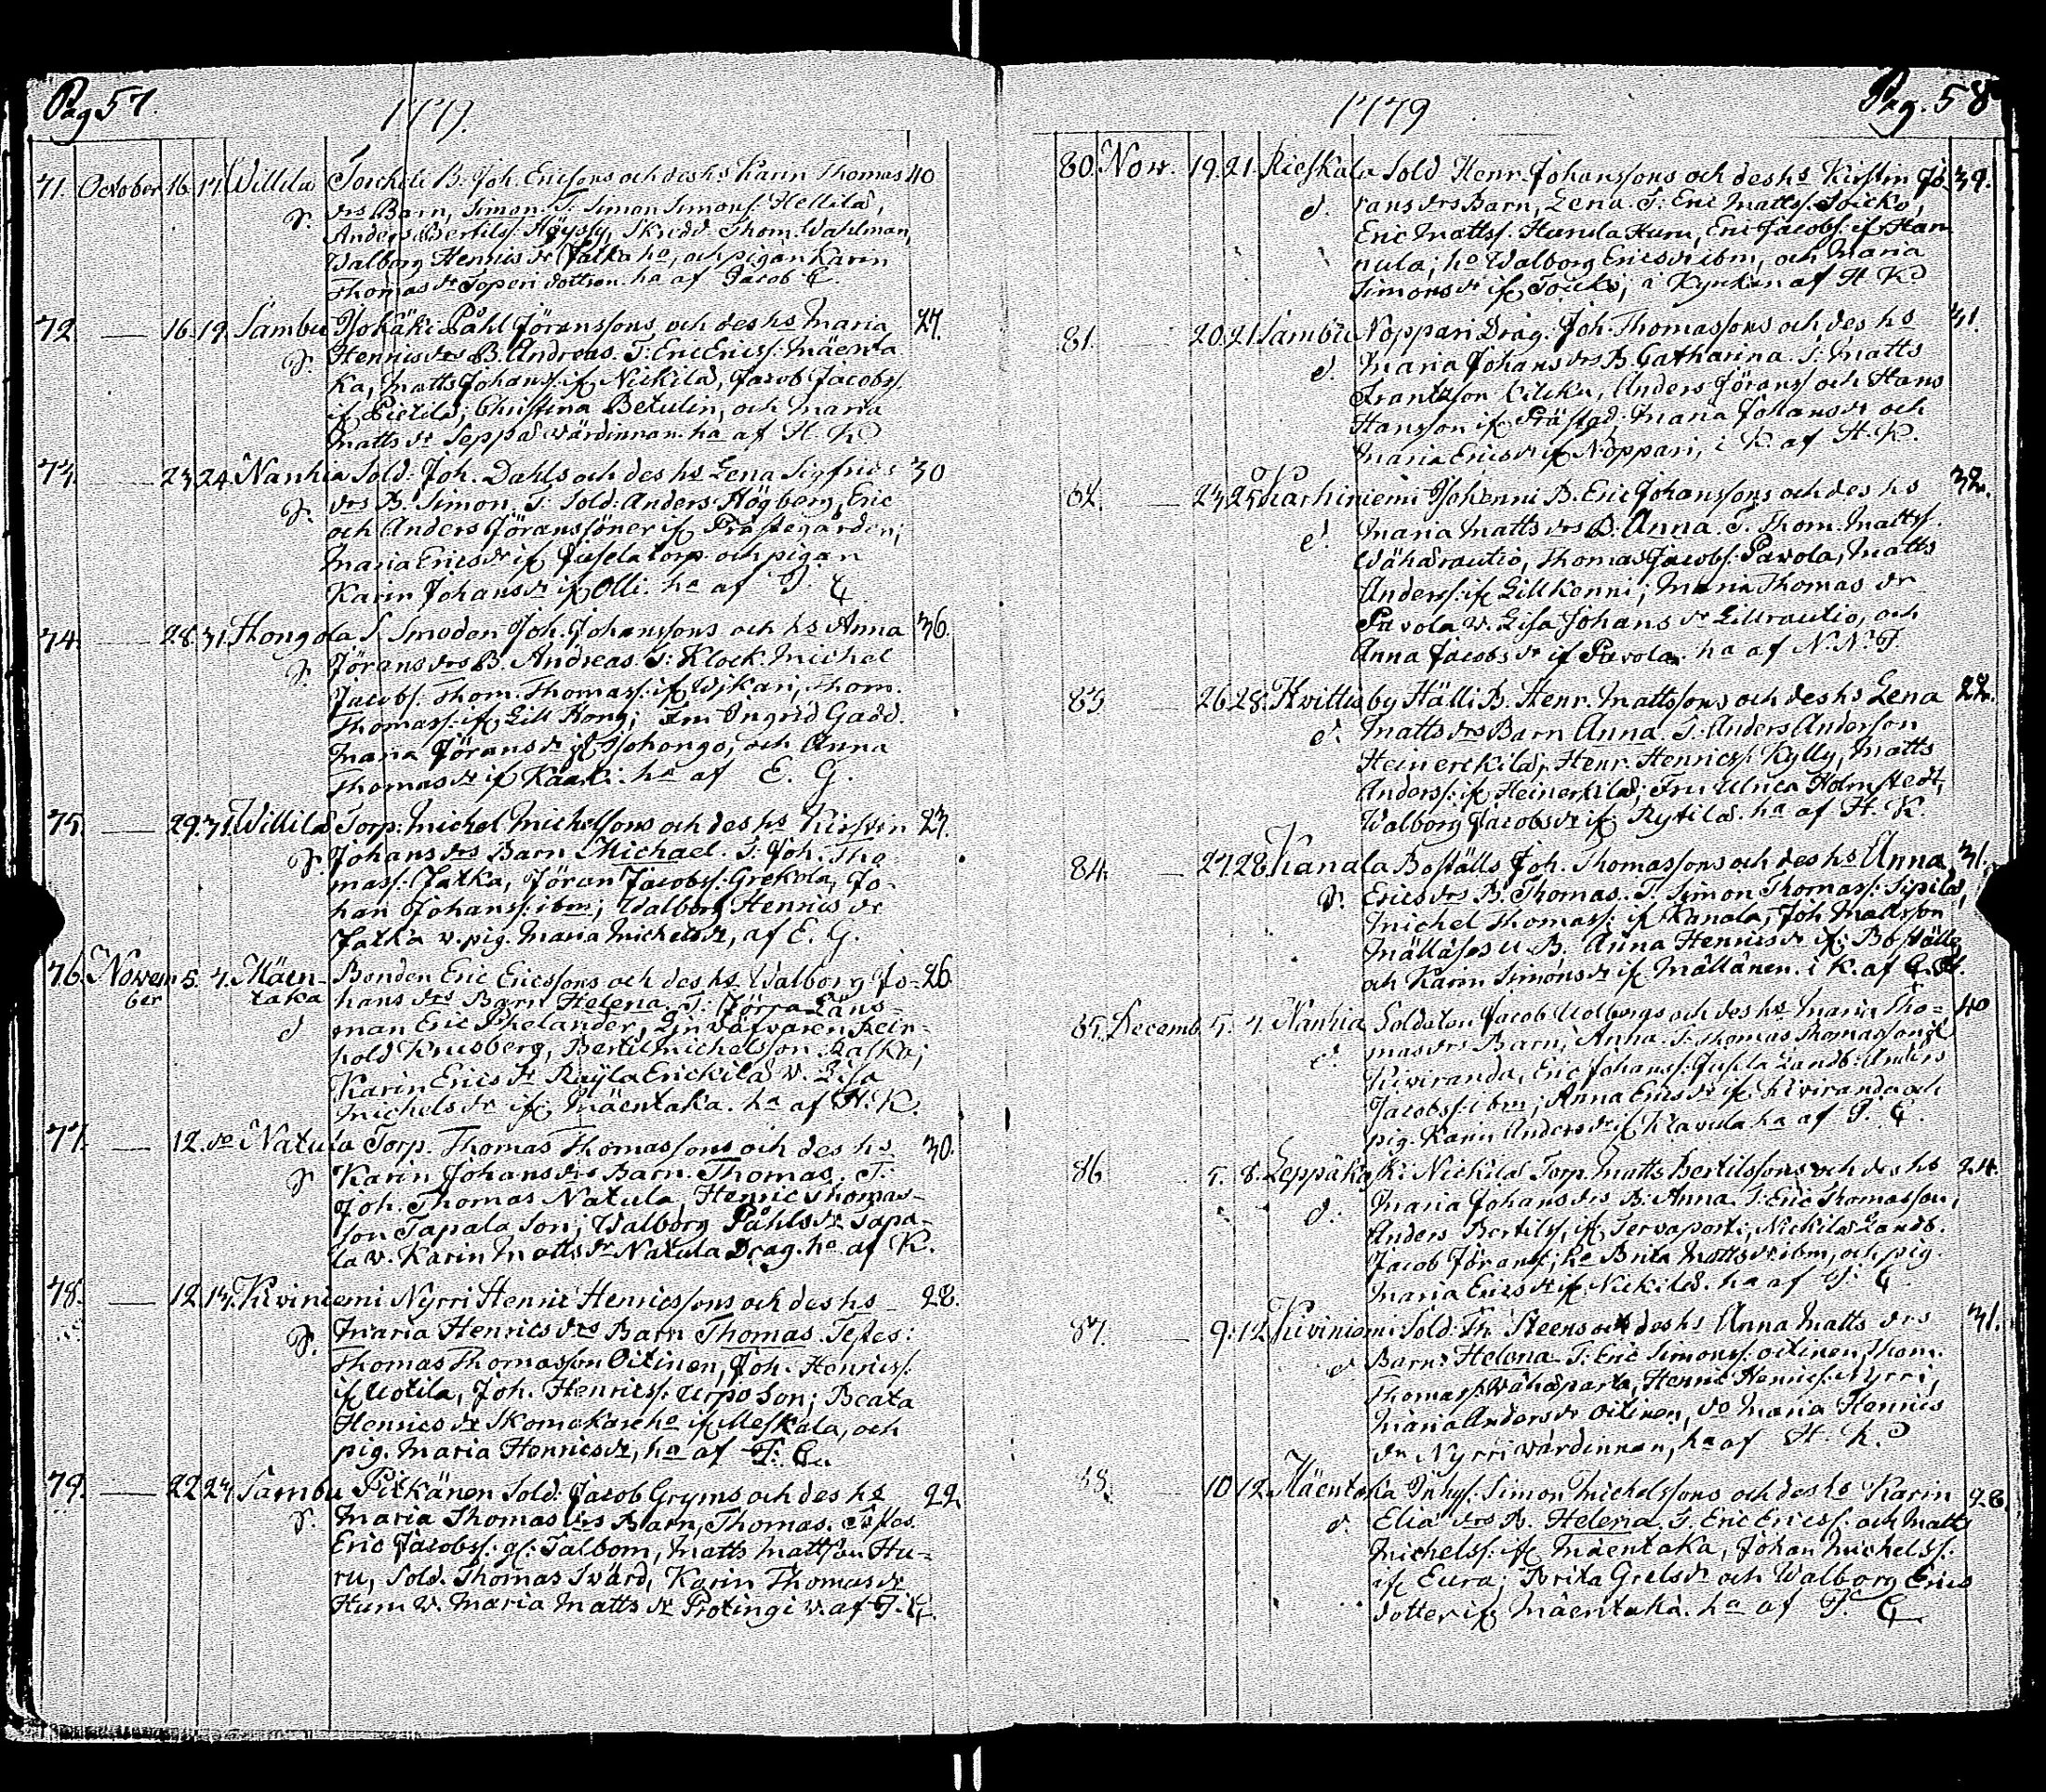 Pag 57.
1779.
71. October 16. 17. Willila Torckeli B. Joh. Ericssons och des hs Karin Thomas 40
drs Barn, Simon. T. Simon Simonss. Hellilä,
Anders Bertilss. Höyssy, Skredd. Thom. Wahlman,
Walborg Henrics dr Jatka ho, och pigan Karin
Thomas dr Toperi dottren. ha af Jacob C.
72. — 16. 19. Sambu Isokäki Påhl Jöranssons och des hs Maria 27.
Henricsdrs B. Andreas. T: Eric Ericss. Mäenta
ka, Matts Johanss. if Nickilä, Jacob Jacobss.
if Pietilä; Christina Betulin, och Maria
Matts dr Seppä värdinnan. ha af H. K.
73. — 23 24. Nanhia Sold. Joh. Dahls och des hs Lena Sigfrids 30
drs B. Simon. T: Sold. Anders Högberg, Eric
och Anders Jöranssöner if Prästegården;
Maria Erics dr if Jusela torp och pigan
Karin Johans dr if Olli. ha af
74. — 28. 31. Hongola S. Smeden Joh. Johanssons och hs Anna 36.
Jörans drs B. Andreas. T: Klock. Michel
Jacobs. Thom. Thomass. if Wikari, Thom.
Thomass. if Lill Hong; Fru Ingrid Gadd.
Maria Jörans dr if Isohongo, och Anna
Thomas dr if Kaaki. ha af E. G.
75. — 29. 31. Willilä Torp. Michel Michelssons och des hs Kirstin 23.
Johans drs Barn Michael. T: Joh. Tho
mass. Jatka, Jöran Jacobss. Grekola, Jo-
han Johanss. ibm; Walborg Henrics dr
Jatka v. pig. Maria Michelsdr, af E. G.
76. Novem 5. 7. Mäen- Bonden Eric Ericssons och des hs Walborg Jo- 26.
ber taka hans drs Barn Helena. T: Länsman
Eric Thelander, Linväfvaren Rein-
hold Krusberg, Bertil Michelsson Ralka;
Karin Erics dr Röyla Erickilä v. Lisa
Michels dr if Mäentaka. ha af H. K.
77. — 12. do Natula Torp. Thomas Thomassons och des hs 30.
Karin Johans drs Barn Thomas. T:
Joh. Thomas Natula, Henric Thomas-
son Tapala son; Walborg Påhls dr Tapa-
la v. Karin Matts dr Natula Drag. ho af K.
78. — 12. 13. Kiviniemi Nyrri Henric Henricssons och des hs 28.
Maria Henrics drs Barn Thomas. Testes:
Thomas Thomasson Oitinen, Joh. Henricss.
if Uotila, Joh. Henricss. Urpo son; Beata
Henrics dr Skomakare ho if Meskala, och
pig. Maria Henricsdr, ha af
79. — 22 23. Sambu Pitkänen Sold. Jacob Gryms och des hs 22.
Maria Thomas drs Barn, Thomas. Testes.
Eric Jacobss. Talbom, Matts Mattson Hu-
ru, Sold. Thomas Svärd, Karin Thomas dr
Huru v. Maria Matts dr Protingi v. af
1779
Pag. 58
80. Nov. 19. 21. Rieskala Sold Henr. Johanssons och des hs Kirstin Jö- 39.
rans drs Barn, Lena. T: Eric Mattss. Soicko,
Eric Mattss. Hanula Huru, Eric Jacobss. if Han
nula; ho Walborg Ericsdr ibm, och Maria
Simons dr if Soicko, i Kyrkan af H. K.
81. — 20. 21. Sambu Noppari Drag. Joh. Thomassons och des hs 31.
Maria Johans drs B. Catharina. T: Matts
Frantzson Kilcku, Anders Jöranss och Hans
Hansson if Prästgd; Maria Johans dr och
Maria Erics dr if Noppari, i K. af H. K.
82. — 23 25 Karhiniemi Isohenni B. Eric Johanssons och des hs 32.
Maria Matts drs B. Anna. T. Thom. Mattss.
Wähärautio, Thomas Jacobs. Pavola, Matts
Anderss. if Lillkenni; Maria Thomas dr
Pavola v. Lisa Johans dr Lillrautio, och
Anna Jacobs dr if Pavola. ha af N. N. T.
83 — 26 28. Kvittisby Hälli B. Henr. Mattssons och des hs Lena 22.
Matts drs Barn Anna. T: Anders Anderson
Heinerckilä, Henr. Henricss. Kylly, Matts
Anderss. if Heinerkilä; Fru Ulrica Holmstedt,
Walborg Jacobs dr if Rytilä. ha af H. K.
84. — 27. 28. Kanala Boställs Joh. Thomassons och des hs Anna 31.
Erics drs B. Thomas. T. Simon Thomass. Sipilä,
Michel Thomass. if Kanala, Joh. Mattsson
B. Anna Henrics dr if Boställe
och Karin Simons dr if Mällänen. i K. af
85. Decemb. 5. 7. Nanhia Soldaten Jacob Uolbergs och des hs Maria Tho- 40
mas drs Barn, Anna. T: Thomas Thomasson if
Kiviranda, Eric Johanss. Jusila Landb. Anders
Jacobss. ibm; Anna Erics dr if Kiviranda och
pig. Karin Anders dr if Kravula ha af
86 5. 8. Leppäkoski Nickilä Torp. Matts Bertilssons och des hs 24.
Maria Johans drs B. Anna. T: Eric Thomasson,
Anders Bertils. if Tervaporti, Nickilä Landb.
Jacob Jöranss; ho Brita Matts dr ibm, och pig.
Maria Erics dr if Nickilä. ha af
87. — 9. 12. Kiviniemi Sold. Th. Steens och des hs Anna Matts drs 31.
Barn Helena. T: Eric Simonss. Oitinen, Thom.
Thomass. Wähäparta, Henric Henricss. Nyrri,
Maria Anders dr Oitinen, do Maria Henrics
dr Nyrri värdinnan, ha af H. K.
88. — 10 12. Mäentaka Inhys. Simon Michelssons och des hs Karin 28.
Eliä drs B. Helena. T. Eric Ericss. och Matts
Michelss. if Mäentaka, Johan Michelss.
if Eura; Brita Grels dr och Walborg Erics
dotter if Mäentaka. ha af